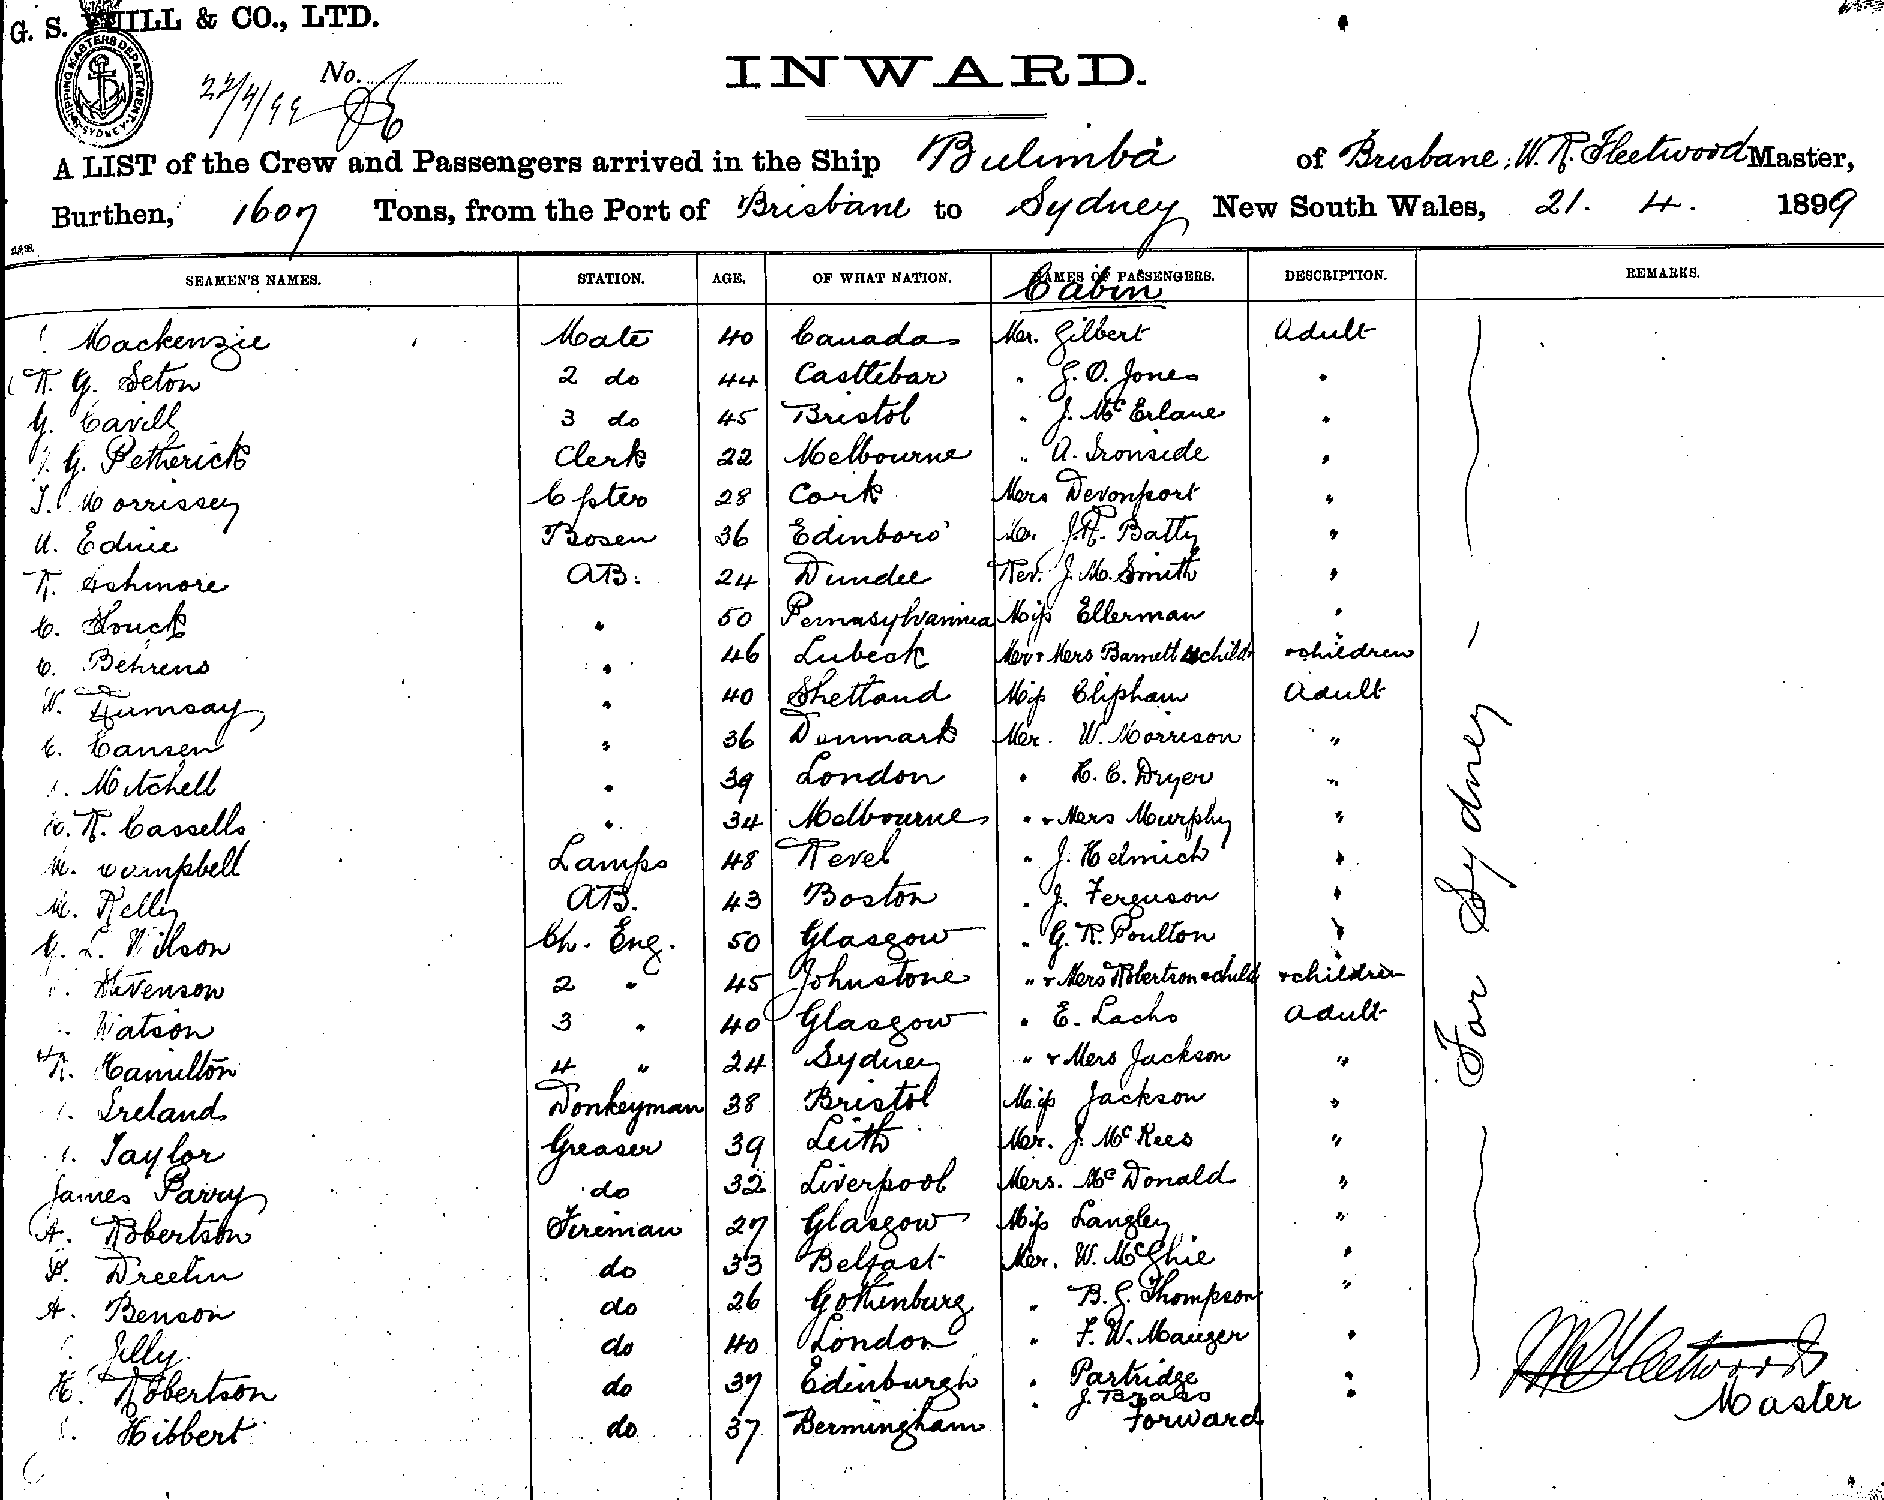 G. S. YUILL & CO., LTD.
SHIPPING MASTERS DEPARTMENT SYDNEY
22/4/99 No.
INWARD.
A LIST of the Crew and Passengers arrived in the Ship Bulimba of Brisbane, W. R. Fleetwood Master,
Burthen, 1607 Tons, from the Port of Brisbane to Sydney New South Wales, 21. 4. 1899
SEAMEN'S NAMES. STATION. AGE. OF WHAT NATION. NAMES OF PASSENGERS. DESCRIPTION. REMARKS.
Cabin
Mackenzie Mate 40 Canada Mr. Gilbert Adult
R. G. Seton 2 do 44 Casttebar " G. O. Jones "
G. Cavill 3 do 45 Bristol " J. McErlane "
G. Petherick Clerk 22 Melbourne " A. Ironside "
T. Morrissey Cpter 28 Cork Mrs Devonport "
A. Ednie Bosen 36 Edinboro' Mr. J. R. Batty "
R. Ashmore AB. 24 Dundee Rev. J. M. Smith "
C. Houck " 50 Pennasylvannia Miss Ellerman "
C. Behrens " 46 Lubeck Mr & Mrs Barnett 4 childn & children
W. Rumsay " 40 Shetland Miss Clipham Adult
C. Cansen " 36 Denmark Mr. W. Morrison "
Mitchell " 39 London " H. C. Dryer "
R. Cassells " 34 Melbourne " & Mrs Murphy "
M. Campbell Lamps 48 Revel " J. Helmich "
M. Kelly AB. 43 Boston " J. Ferguson "
G. L. Wilson Ch. Eng. 50 Glasgow " G. R. Poulton "
Stevenson 2 " 45 Johnstone " & Mrs Robertson & child & children
Watson 3 " 40 Glasgow " E. Lachs Adult
R. Hamilton 4 " 24 Sydney " & Mrs Jackson "
Ireland Donkeyman 38 Bristol Miss Jackson "
Taylor Greaser 39 Leith Mr. J. McKees "
James Parry do 32 Liverpool Mrs. McDonald "
A. Robertson Fireman 27 Glasgow Miss Langley "
Dreelin do 33 Belfast Mr. W. McGhie "
A. Benson do 26 Gothenburg " B. G. Thompson "
Jilly do 40 London " F. W. Mauger "
H. Robertson do 37 Edinburgh " Partridge "
" J. Brass "
Hibbert do 37 Bermingham Forward
For Sydney
W R Fleetwood
Master